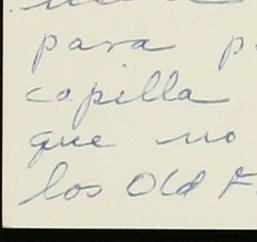 para p
capilla
que no
los Old F